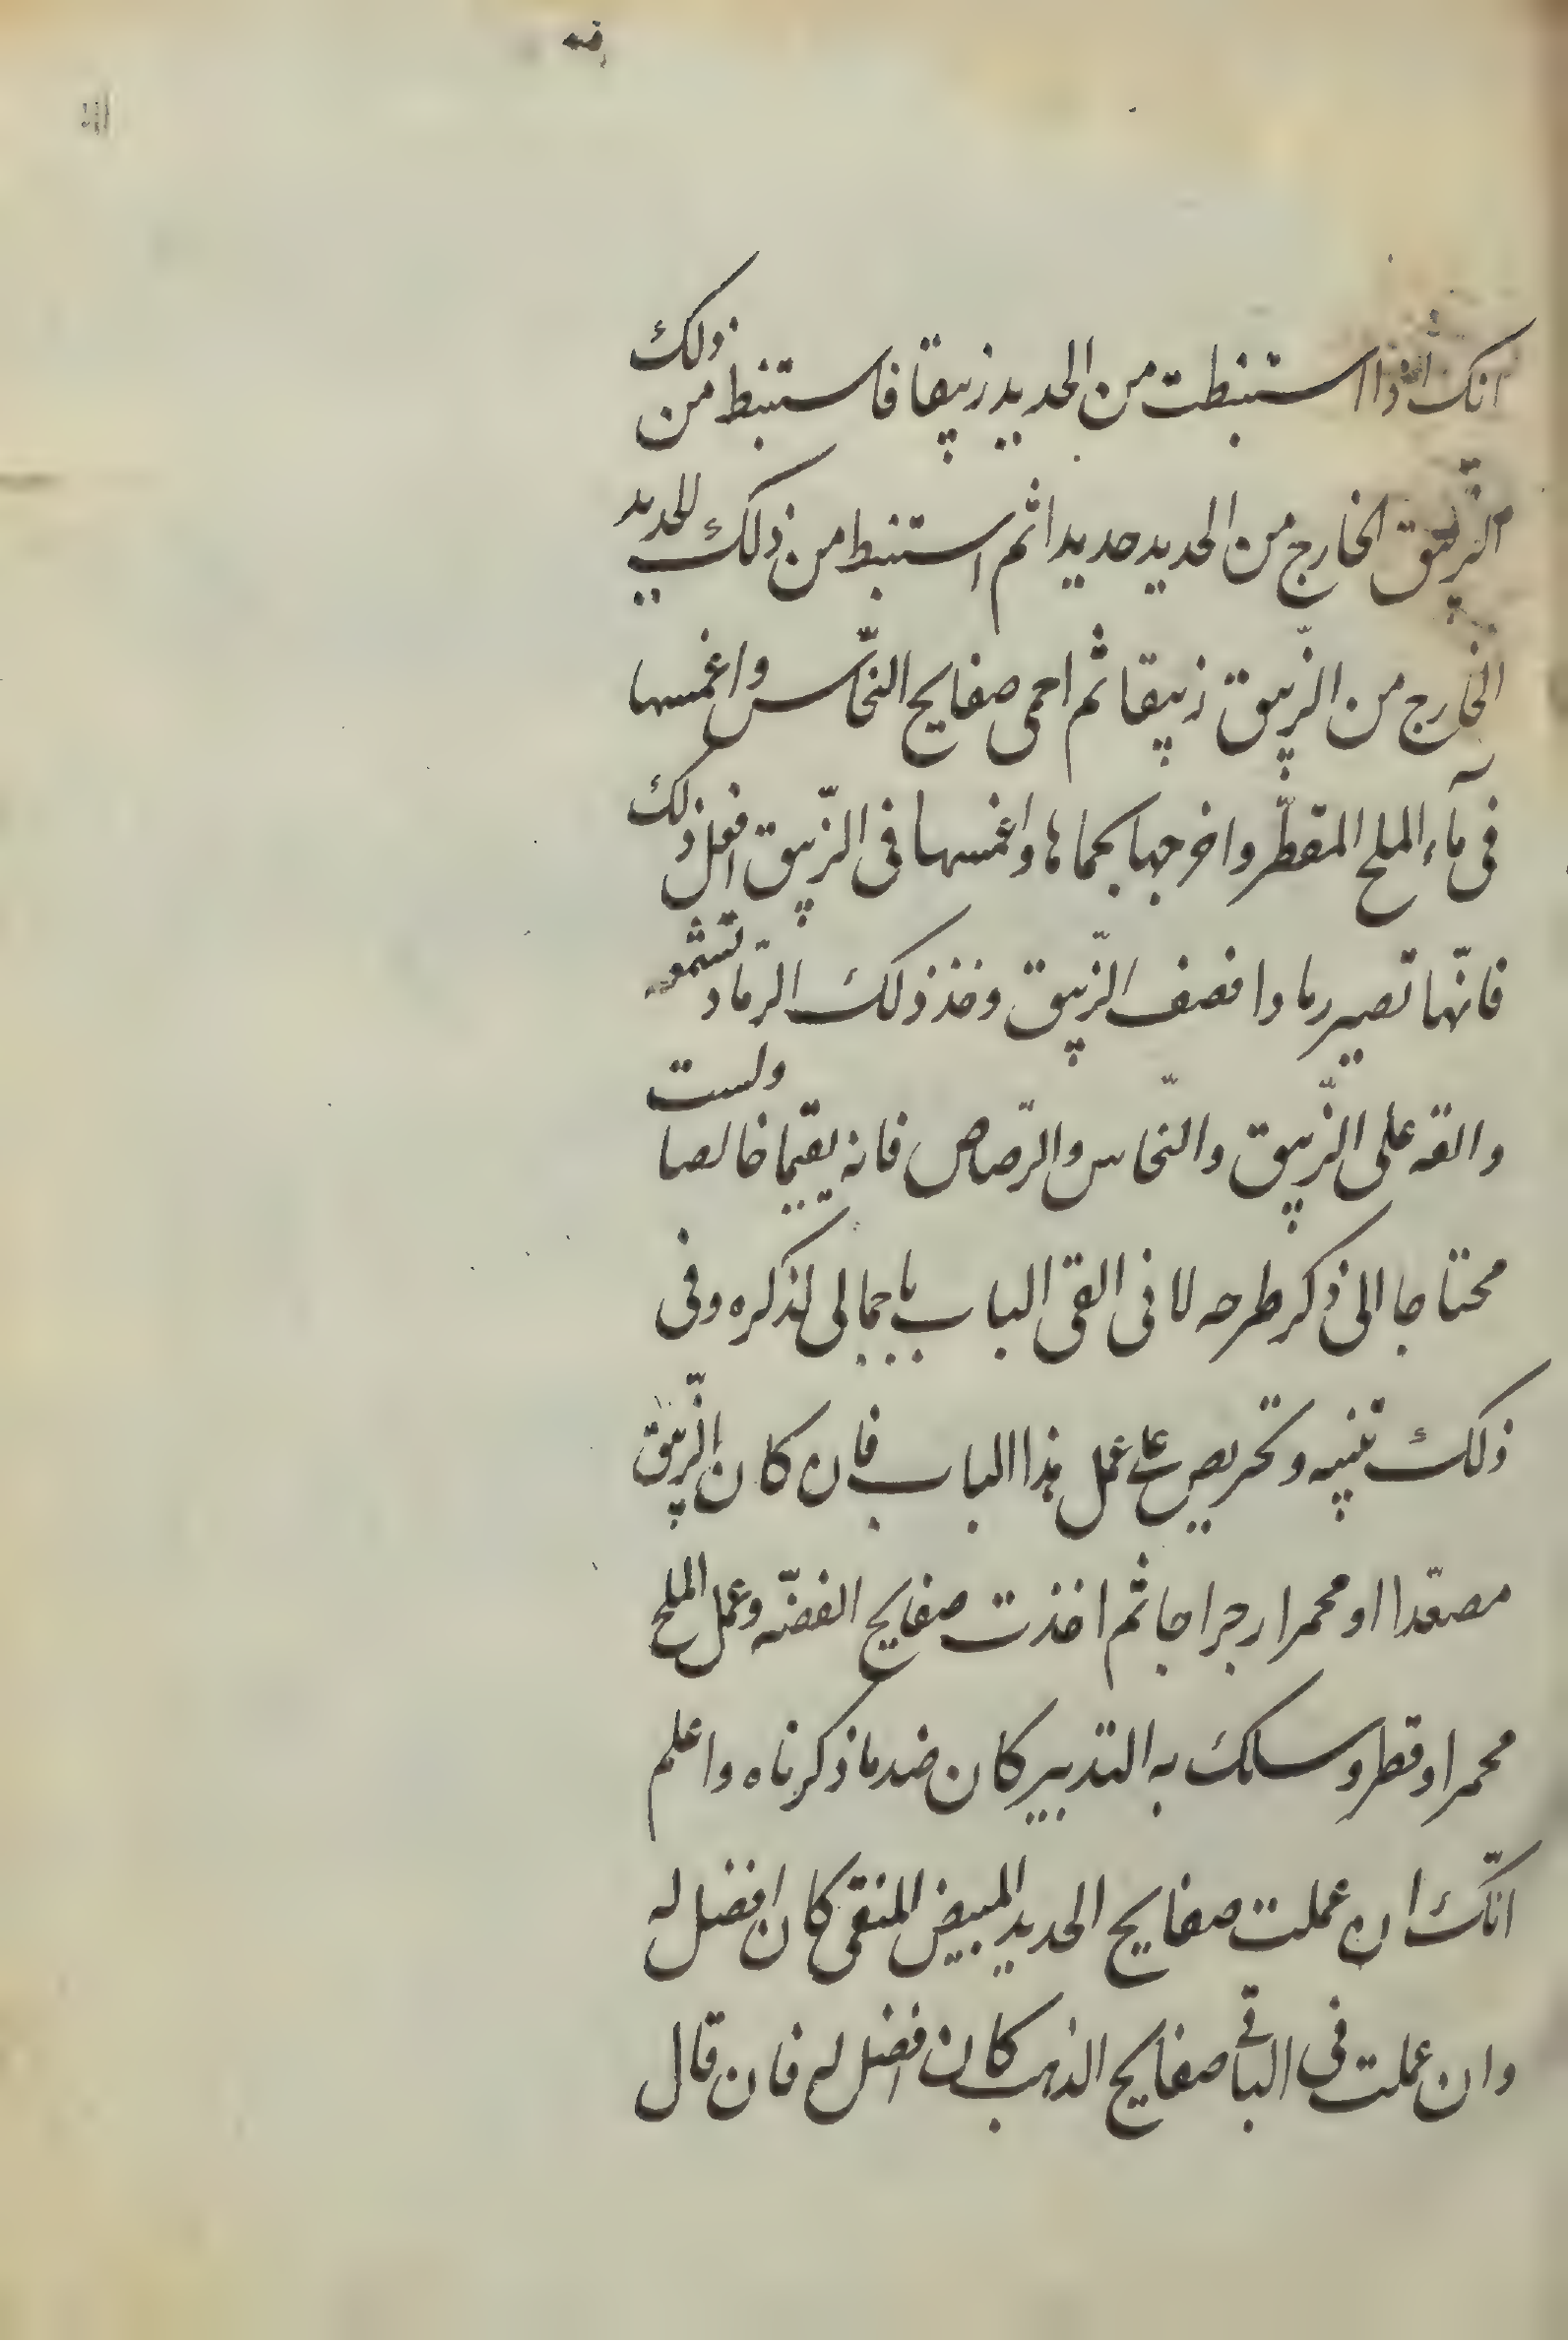 انك اذا استنبطت من الحديد زيبقا فاستنبط من ذلك
الزّيبق الخارج من الحديد حديدا ثم استنبط من ذلك الحديد
الخارج من الزّيبق زيبقا ثم احمى صفايح النحّاس واغمسها
فى مآء الملح المقطّر واخرجها بحماها واغمسها فى الزّيبق افعل ذلك
فانّها تصير رمادا فصف الزّيبق وخذ ذلك الرّماد
والقه على الزّيبق والنّحاس والرّصاص فانه يقيما خالصا ولست
محتاجا الى ذكر طرحه لا فى القى الباب باجمالى لذكره وفى
ذلك تنبيه وتحريص على عمل هذا الباب فان كان الزّيبق
مصعّدا او محمرا رجراجا ثم اخذت صفايح الفضّه وعمل الملح
محمرا وقطر وسلك به التدبير كان ضد ما ذكرناه واعلم
انّك ان عملت صفايح الحديد المبيض المنقى كان افضل له
وان عملت فى الباقى صفايح الذهب كان افضل له فان قال